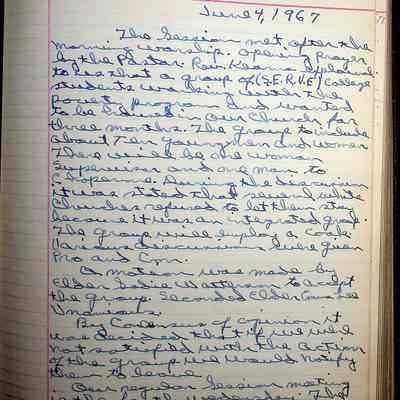 June 4, 1967
The Session met after the
morning worship. Opening Prayer
by the Pastor. Rev. explained
to us that a group of (S.E.R.V.E) College
students working with the
Poverty program and wanted
to be housed in our Church for
three months. The group to include
about Ten young men and women
There will be one woman
Supervisor and one man to
Chaperone. During the discussion
it was stated that several white
Churches refused to let them stay
because it was an integrated group.
The group will employ a Cook.
Various discussions were given
Pro and Con.
A motion was made by
Elder Sadie Watterson to accept
the group. Seconded Elder
Unanious.
By Consensus of opinion it
was decided that if we were
not satisfied with the action
of the group we would notify
them to leave.
Our regular Session meeting
is the fourth Wednesday. The